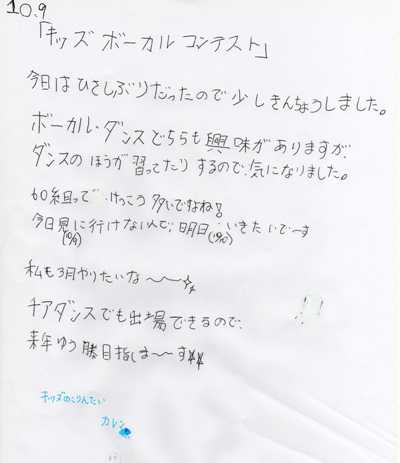 10.9
「キッズ ボーカル コンテスト」
今日は ひさしぶりだったので 少し きんちょうしました。
ボーカル・ダンス どちらも 興味が ありますが、
ダンスの ほうが 習ってたり するので、気になりました。
60組って けっこう 多いですよね!
今日 見に行けないんで、明日 いきたいでーす
(10/9) (10/10)
私も 3月 やりたいな 〜〜
チアダンスでも 出場できるので、
来年 ゆう勝 目指しま〜〜す
キッズのこりんたい
カレン